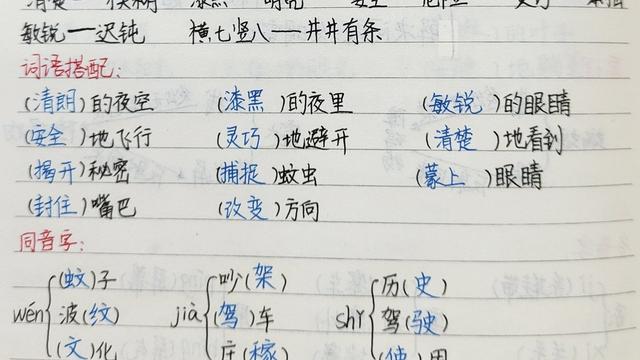 清楚—模糊 漆黑—明
敏锐—迟钝 横七竖八——井井有条
词语搭配:
(清朗)的夜空 (漆黑)的夜里 (敏锐)的眼睛
(安全)地飞行 (灵巧)地避开 (清楚)地看到
(揭开)秘密 (捕捉)蚊虫 (蒙上)眼睛
(封住)嘴巴 (改变)方向
同音字:
(蚊)子 吵(架) 历(史)
wén 波(纹) jià (驾)车 shǐ 驾(驶)
(文)化 庄(稼) (使)用